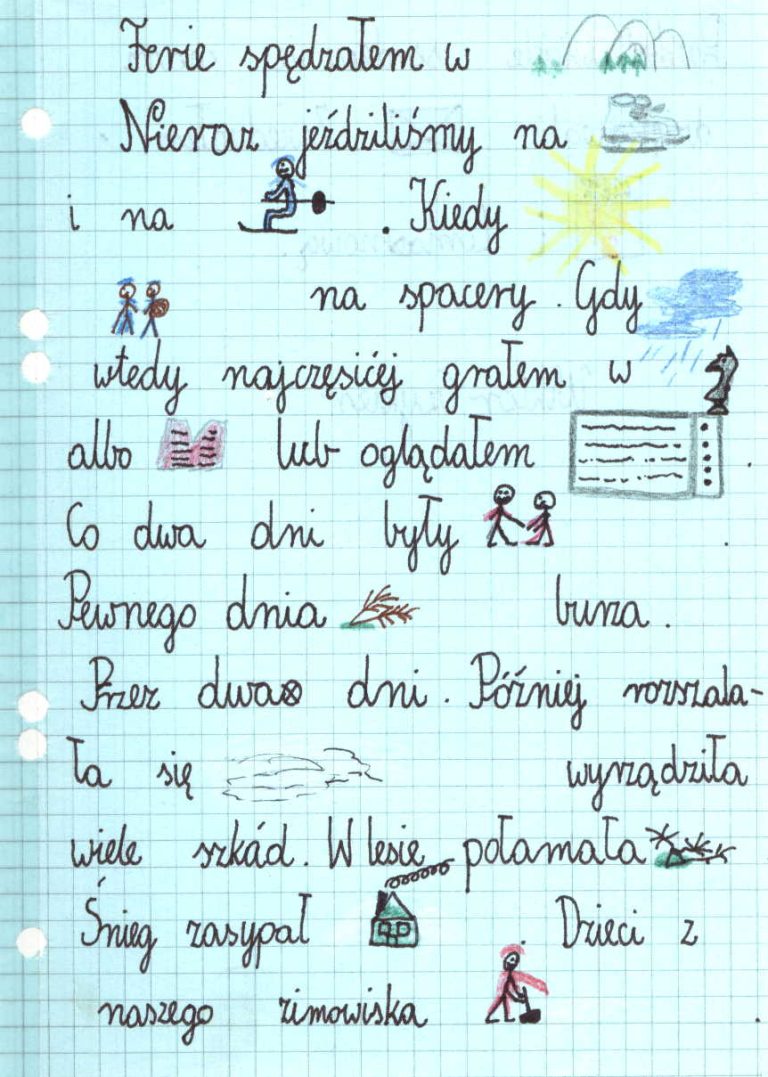 Ferie spędzałem w
Nieraz jeździliśmy na
i na . Kiedy
na spacery . Gdy
wtedy najczęsićej grałem w
albo lub oglądałem .
Co dwa dni były .
Pewnego dnia burza .
Przez dwa dni . Później rozszala-
ła się wyrządziła
wiele szkód . W lesie połamała
Śnieg zasypał . Dzieci z
naszego zimowiska .